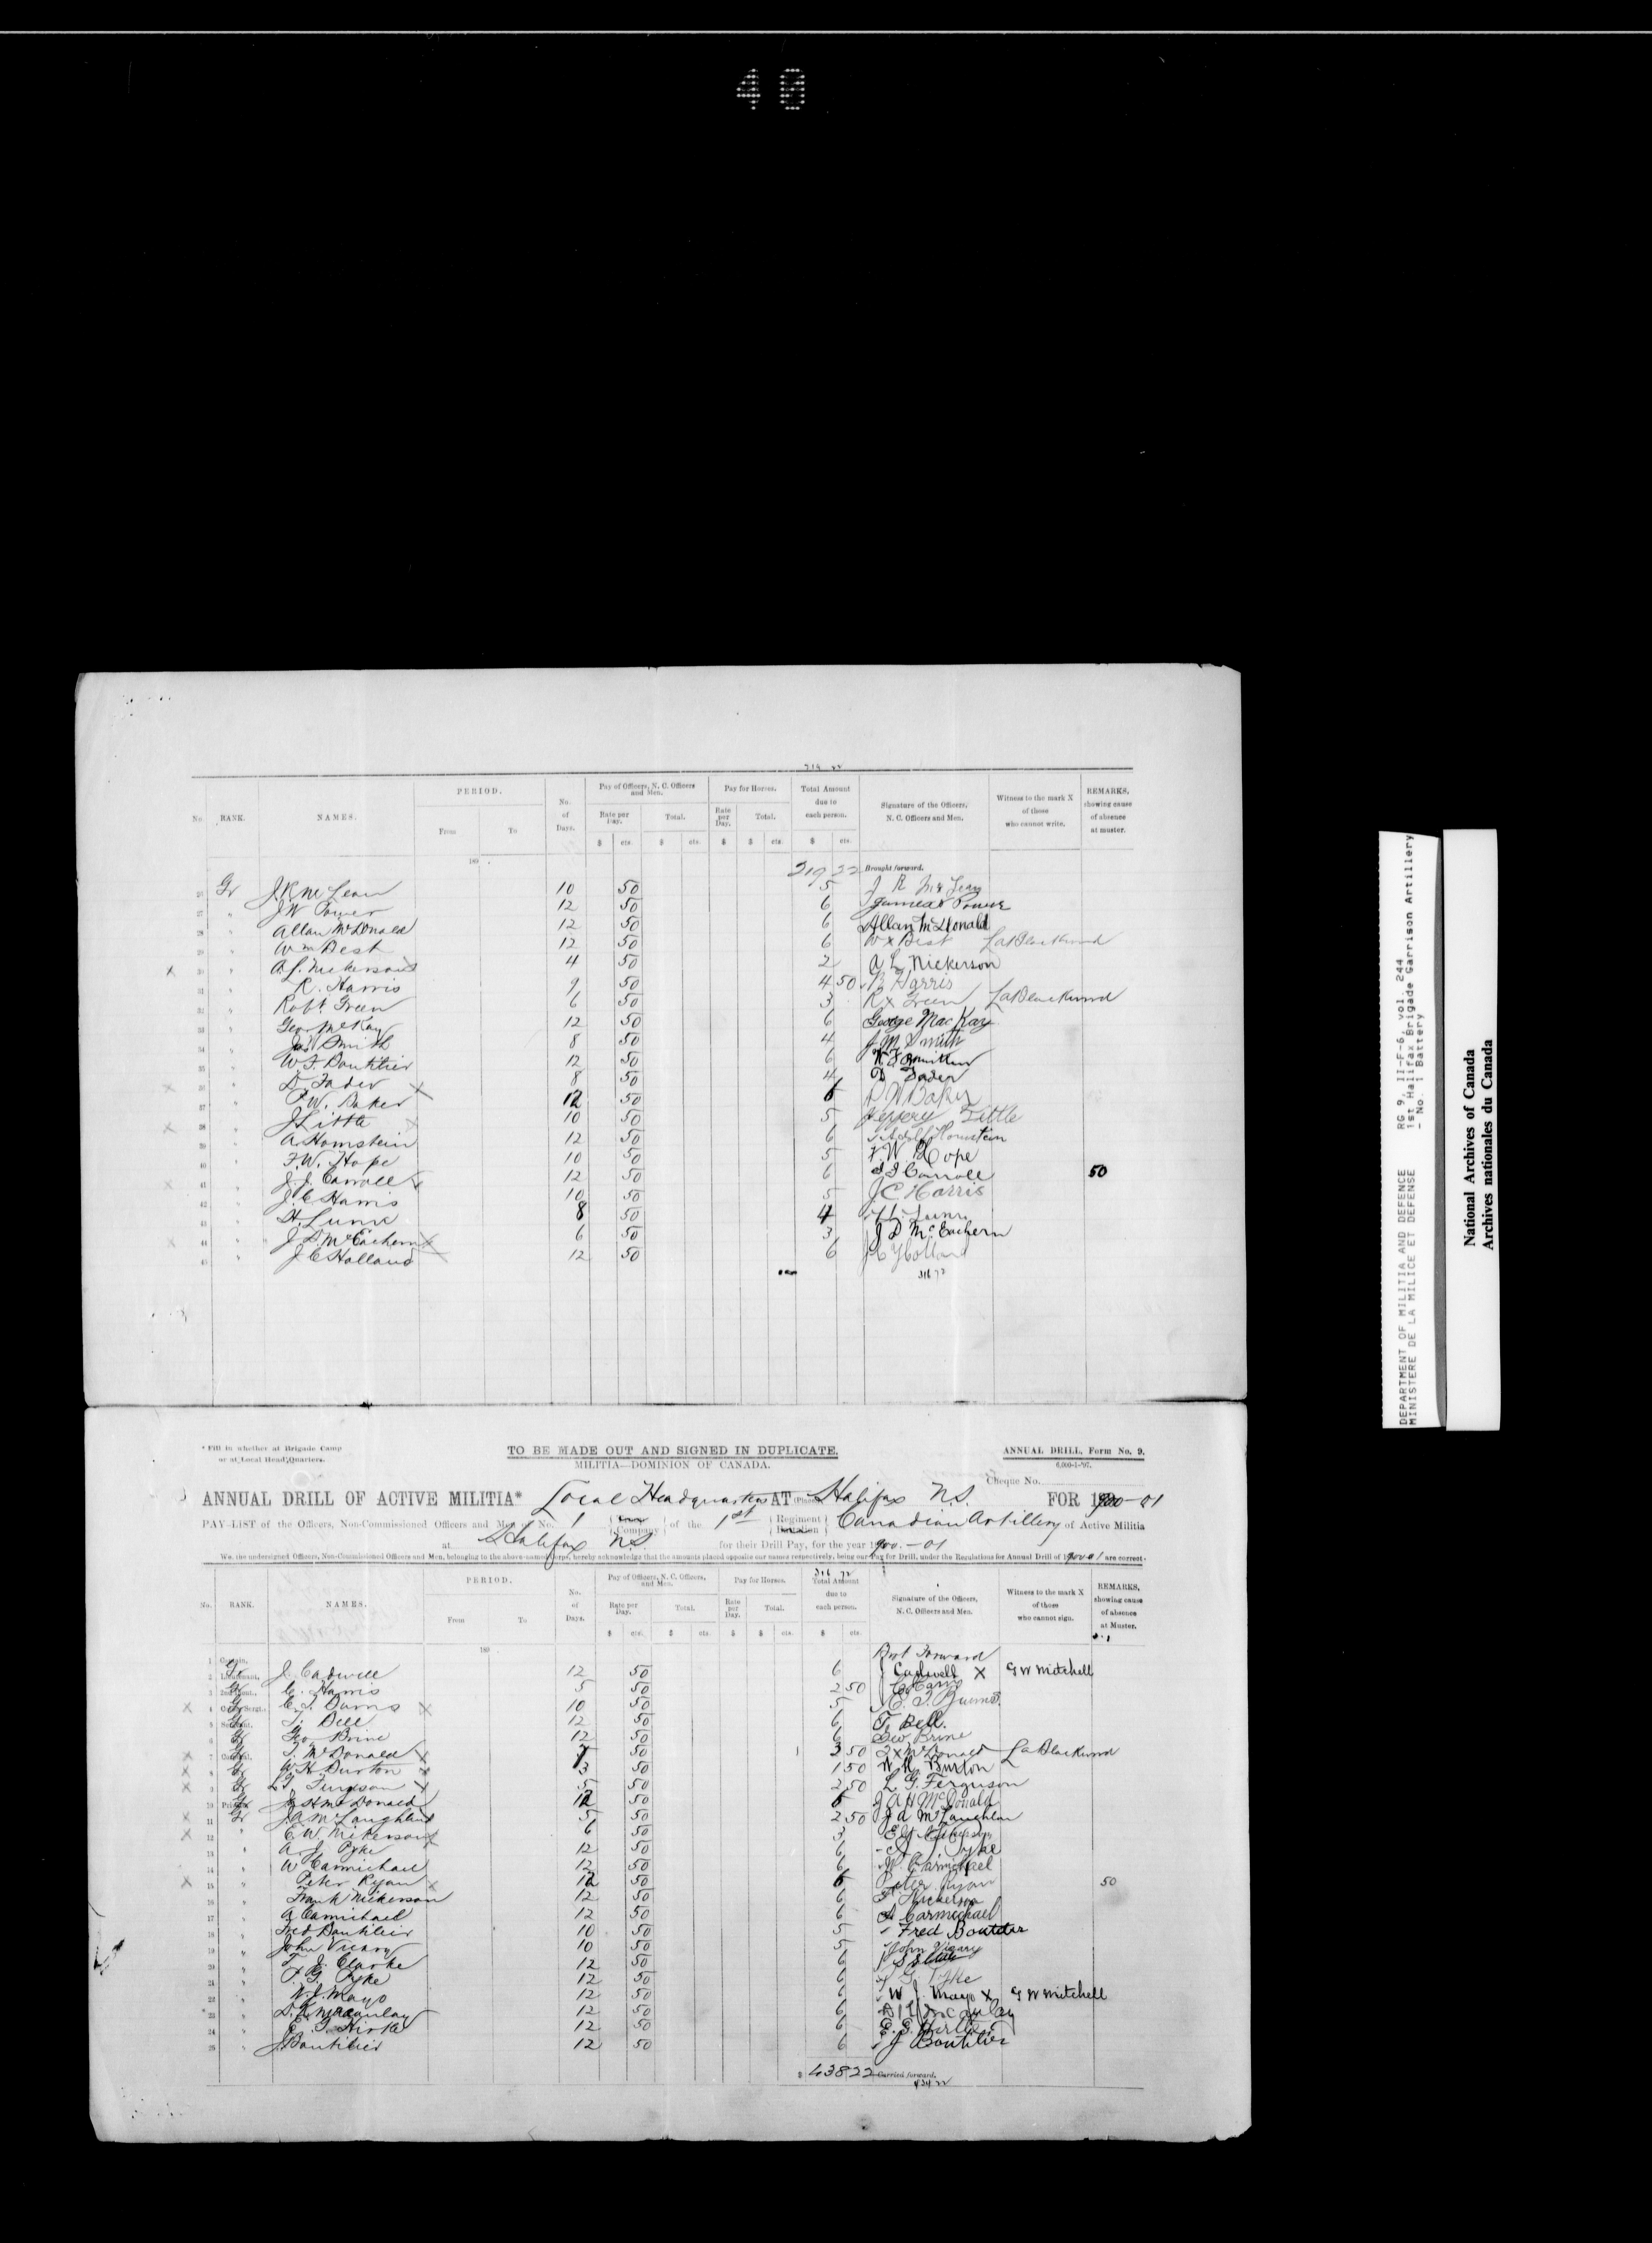 40
PERIOD. Pay of Officers, N. C. Officers and Men. Pay for Horses. Total Amount due to each person. Signature of the Officers, N. C. Officers and Men. Witness to the mark X of those who cannot write. REMARKS, showing cause of absence at muster.
No. RANK. NAMES. From To No. of Days. Rate per Day. Total. Rate per Day. Total.
$ cts. $ cts. $ $ cts. $ cts.
189 . 219 22 Brought forward.
26 Gr J.R McLean 10 50 5 J R McLean
27 " J W Power 12 50 6 James Power
28 " Allan McDonald 12 50 6 Allan McDonald
29 " Wm Best 12 50 6 W x Best La Blackwood
x 30 " A.L. Nickerson 4 50 2 A L Nickerson
31 " R. Harris 9 50 4 50 R Harris
32 " Robt Green 6 50 3 R x Green La Blackwood
33 " Geo McKay 12 50 6 George MacKay
34 " Jas Smith 8 50 4 J M Smith
35 " W.F. Boutilier 12 50 6
x 36 " D. Fader x 8 50 4 D Fader
37 " P.W. Baker 12 50 6 P W Baker
x 38 " J Little x 10 50 5 Little
39 " A. Hornstein 12 50 6 Hornstein
40 " F.W. Hope 10 50 5 F. W. Hope
x 41 " J. J. Carroll x 12 50 6 J J Carroll 50
42 " J. C Harris 10 50 5 J C Harris
43 " H. 8 50 4
x 44 " J D. McEachern x 6 50 3 J D McEachern
45 " J C Holland 12 50 6 J C Holland
316 72
* Fill in whether at Brigade Camp or at Local Head Quarters.
TO BE MADE OUT AND SIGNED IN DUPLICATE.
ANNUAL DRILL, Form No. 9.
MILITIA—DOMINION OF CANADA.
6,000-1-'97.
Cheque No.
ANNUAL DRILL OF ACTIVE MILITIA* Local Headquarters AT (Place) Halifax N.S. FOR 1900-01
PAY-LIST of the Officers, Non-Commissioned Officers and Men of No. 1 Company of the 1st Regiment Battalion Canadian Artillery of Active Militia
at Halifax N.S. for their Drill Pay, for the year 1900-01
We, the undersigned Officers, Non-Commissioned Officers and Men, belonging to the above-named Corps, hereby acknowledge that the amounts placed opposite our names respectively, being our Pay for Drill, under the Regulations for Annual Drill of 1900-01 are correct.
316 72
PERIOD. Pay of Officers, N. C. Officers, and Men. Pay for Horses. Total Amount due to each person. Signature of the Officers, N. C. Officers and Men. Witness to the mark X of those who cannot sign. REMARKS, showing cause of absence at Muster.
No. RANK. NAMES. From To No. of Days. Rate per Day. Total. Rate per Day. Total.
$ cts. $ cts. $ $ cts. $ cts.
189 Brt Forward
1 Captain,
2 Lieutenant, Gr J. Cadwell 12 50 6 J Cadwell X G W Mitchell
3 2nd Lieut., Gr C. Harris 5 50 2 50 C Harris
x 4 Color Sergt., Gr C. T. Burns x 10 50 5 C. T. Burns.
5 Sergeant, Gr T. Bell 12 50 6 T. Bell.
6 Gr Geo Brine 12 50 6 Geo. Brine
x 7 Corporal, Gr T. McDonald x 7 50 3 50 T x McDonald La Blackwood
x 8 Gr W.H. Burton x 3 50 1 50 W H. Burton
x 9 Gr L.G. Ferguson x 5 50 2 50 L. G. Ferguson
10 Private, Gr J A H McDonald 12 50 6 J A H McDonald
x 11 Gr J.A McLaughlan 5 50 2 50 J A McLaughlan
x 12 " E. W. Nickerson x 6 50 3 Nickerson
13 " A. J. Pyke 12 50 6 J Pyke
14 " W Carmichael 12 50 6 W. Carmichael
x 15 " Peter Ryan x 12 50 6 Peter Ryan 50
16 " Frank Nickerson 12 50 6 F Nickerson
17 " A Carmichael 12 50 6 A Carmichael
18 " Fred Boutilier 10 50 5 Fred Boutilier
19 " John Vicary 10 50 5 John Vicary
20 " T. J. Clarke 12 50 6
21 " F. G. Pyke 12 50 6 G Pyke
22 " W.J. Mayo 12 50 6 W J. Mayo x G W Mitchell
23 " D. K McAulay 12 50 6
24 " E. G. 12 50 6 E. G.
25 " J. Boutilier 12 50 6 J Boutilier
$ 438 22 Carried forward.
434 22
DEPARTMENT OF MILITIA AND DEFENCE RG 9, II-F-6, vol. 244
MINISTERE DE LA MILICE ET DEFENSE 1st Halifax Brigade Garrison Artillery
- No. 1 Battery
National Archives of Canada
Archives nationales du Canada